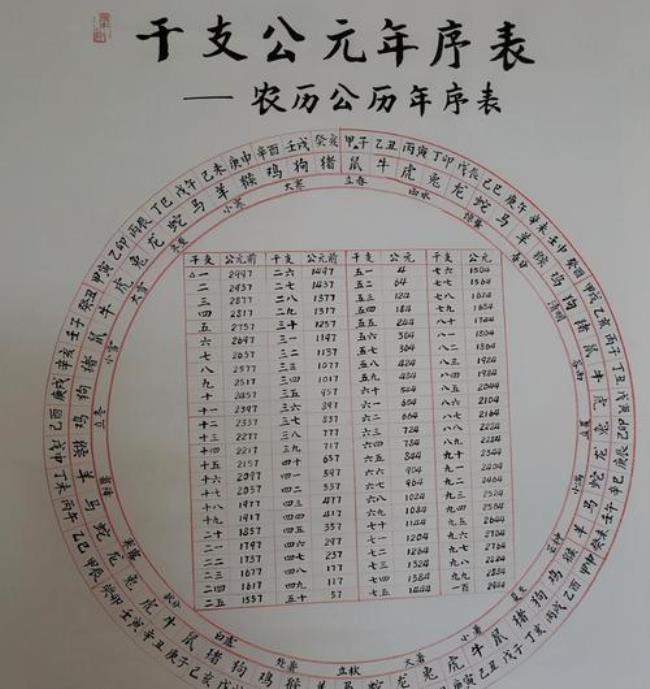 干支公元年序表
— 农历公历年序表
甲子 乙丑 丙寅 丁卯 戊辰 己巳 庚午 辛未 壬申 癸酉 甲戌 乙亥 丙子 丁丑 戊寅 己卯 庚辰 辛巳 壬午 癸未 甲申 乙酉 丙戌 丁亥 戊子 己丑
庚子 辛丑 壬寅 癸卯 甲辰 乙巳 丙午 丁未 戊申 己酉 庚戌 辛亥 壬子 癸丑 甲寅 乙卯 丙辰 丁巳 戊午 己未 庚申 辛酉 壬戌 癸亥
鼠 牛 虎 兔 龙 蛇 马 羊 猴 鸡 狗 猪 鼠 牛 虎 兔 龙 蛇 马 羊 猴 鸡 狗 猪 鼠 牛 虎 兔 龙 蛇 马 羊 猴 鸡 狗 猪 鼠 牛 虎 兔 龙 蛇 马 羊 猴 鸡 狗 猪 鼠 牛 虎 兔 龙 蛇 马 羊 猴 鸡 狗 猪
立春 雨水 惊蛰 春分 清明 谷雨 立夏 小满 芒种 夏至 小暑 大暑 立秋 处暑 白露 秋分 寒露 霜降 立冬 小雪 大雪 冬至 小寒 大寒
干支 公元前 干支 公元前 干支 公元 干支 公元
△一 2997 二六 1497 五一 4 七六 1504
二 2937 二七 1437 五二 64 七七 1564
三 2877 二八 1377 五三 124 七八 1624
四 2817 二九 1317 五四 184 七九 1684
五 2757 三十 1257 五五 244 八十 1744
六 2697 三一 1197 五六 304 八一 1804
七 2637 三二 1137 五七 364 八二 1864
八 2577 三三 1077 五八 424 八三 1924
九 2517 三四 1017 五九 484 八四 1984
十 2457 三五 957 六十 544 八五 2044
十一 2397 三六 897 六一 604 八六 2104
十二 2337 三七 837 六二 664 八七 2164
十三 2277 三八 777 六三 724 八八 2224
十四 2217 三九 717 六四 784 八九 2284
十五 2157 四十 657 六五 844 九十 2344
十六 2097 四一 597 六六 904 九一 2404
十七 2037 四二 537 六七 964 九二 2464
十八 1977 四三 477 六八 1024 九三 2524
十九 1917 四四 417 六九 1084 九四 2584
二十 1857 四五 357 七十 1144 九五 2644
二一 1797 四六 297 七一 1204 九六 2704
二二 1737 四七 237 七二 1264 九七 2764
二三 1677 四八 177 七三 1324 九八 2824
二四 1617 四九 117 七四 1384 九九 2884
二五 1557 五十 57 七五 1444 一百 2944